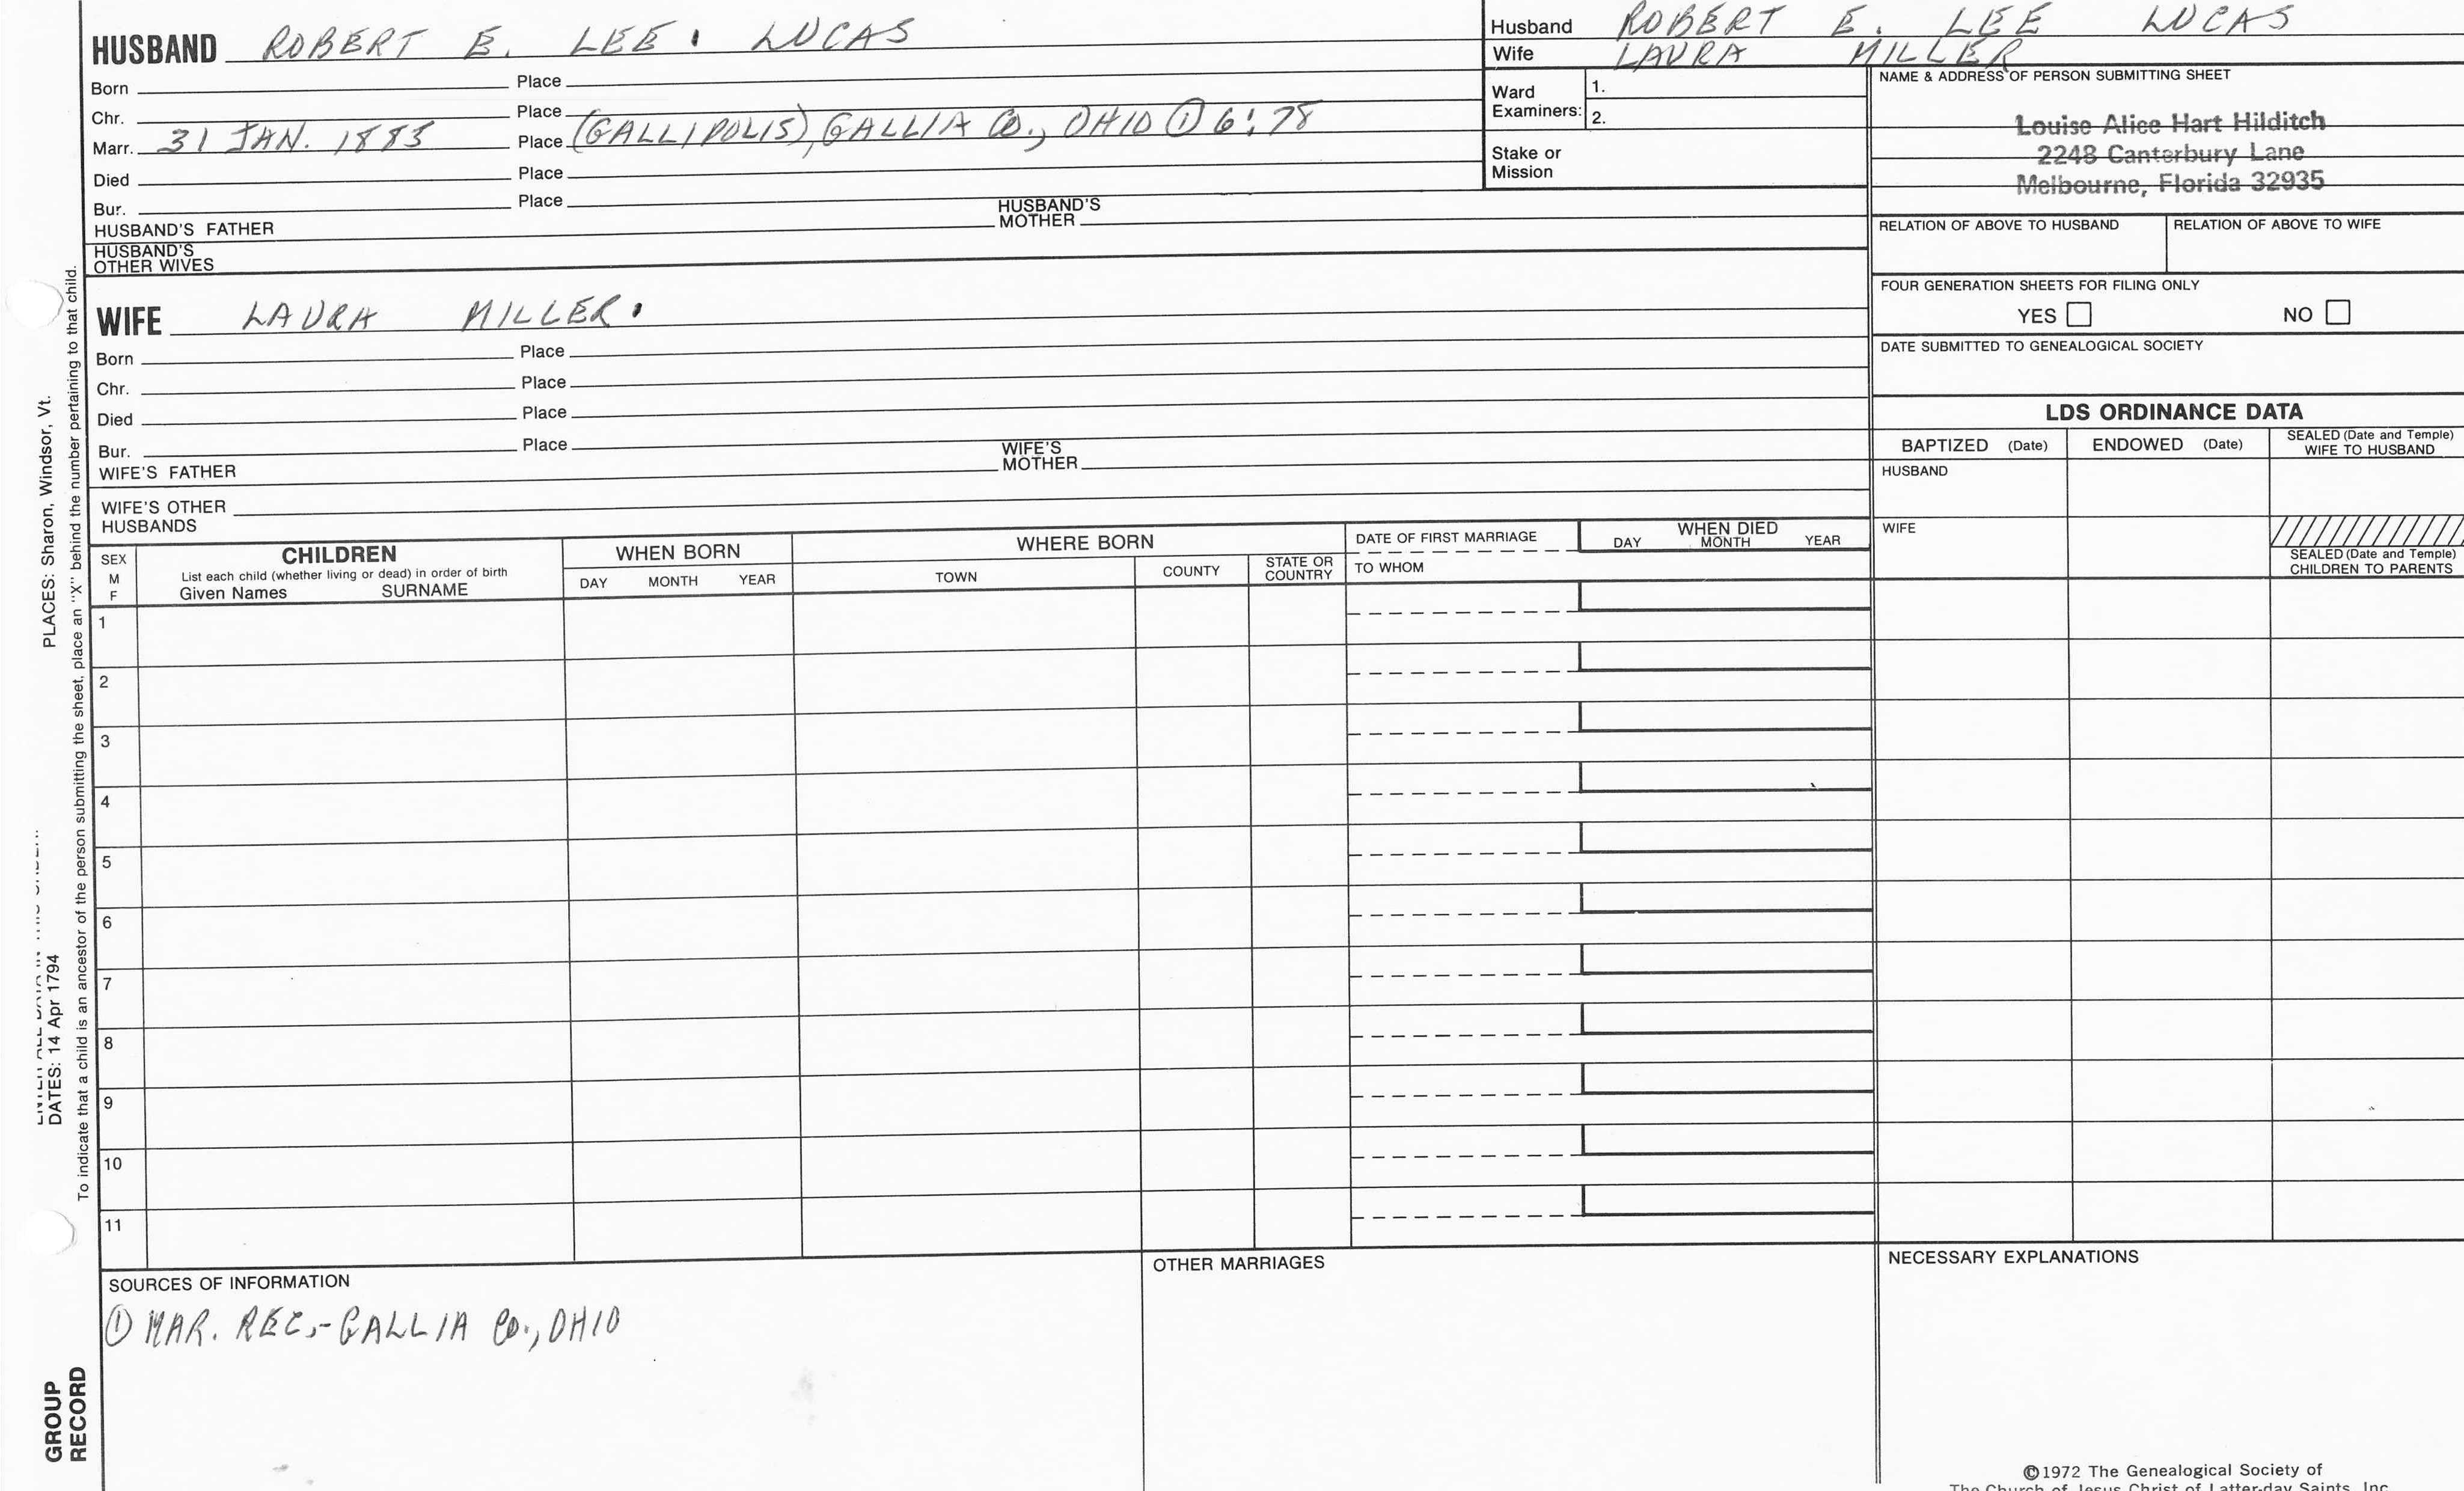 HUSBAND ROBERT E. LEE. LUCAS
Born Place
Chr. Place
Marr. 31 JAN. 1883 Place (GALLIPOLIS), GALLIA CO., OHIO ① 6:78
Died Place
Bur. Place
HUSBAND'S FATHER HUSBAND'S MOTHER
HUSBAND'S
OTHER WIVES
Husband ROBERT E. LEE LUCAS
Wife LAURA MILLER
Ward
Examiners:
1.
2.
Stake or
Mission
NAME & ADDRESS OF PERSON SUBMITTING SHEET
Louise Alice Hart Hilditch
2248 Canterbury Lane
Melbourne, Florida 32935
RELATION OF ABOVE TO HUSBAND RELATION OF ABOVE TO WIFE
FOUR GENERATION SHEETS FOR FILING ONLY
YES NO
DATE SUBMITTED TO GENEALOGICAL SOCIETY
WIFE LAURA MILLER.
Born Place
Chr. Place
Died Place
Bur. Place
WIFE'S FATHER WIFE'S MOTHER
WIFE'S OTHER
HUSBANDS
LDS ORDINANCE DATA
BAPTIZED (Date) ENDOWED (Date) SEALED (Date and Temple) WIFE TO HUSBAND
HUSBAND
WIFE
SEALED (Date and Temple)
CHILDREN TO PARENTS
SEX
M
F
CHILDREN
List each child (whether living or dead) in order of birth
Given Names SURNAME
WHEN BORN
DAY MONTH YEAR
WHERE BORN
TOWN COUNTY STATE OR COUNTRY
DATE OF FIRST MARRIAGE
TO WHOM
WHEN DIED
DAY MONTH YEAR
1
2
3
4
5
6
7
8
9
10
11
SOURCES OF INFORMATION
① MAR. REC.- GALLIA CO., OHIO
OTHER MARRIAGES
NECESSARY EXPLANATIONS
©1972 The Genealogical Society of
The Church of Jesus Christ of Latter-day Saints, Inc.
PLACES: Sharon, Windsor, Vt.
DATES: 14 Apr 1794
To indicate that a child is an ancestor of the person submitting the sheet, place an "X" behind the number pertaining to that child.
GROUP
RECORD